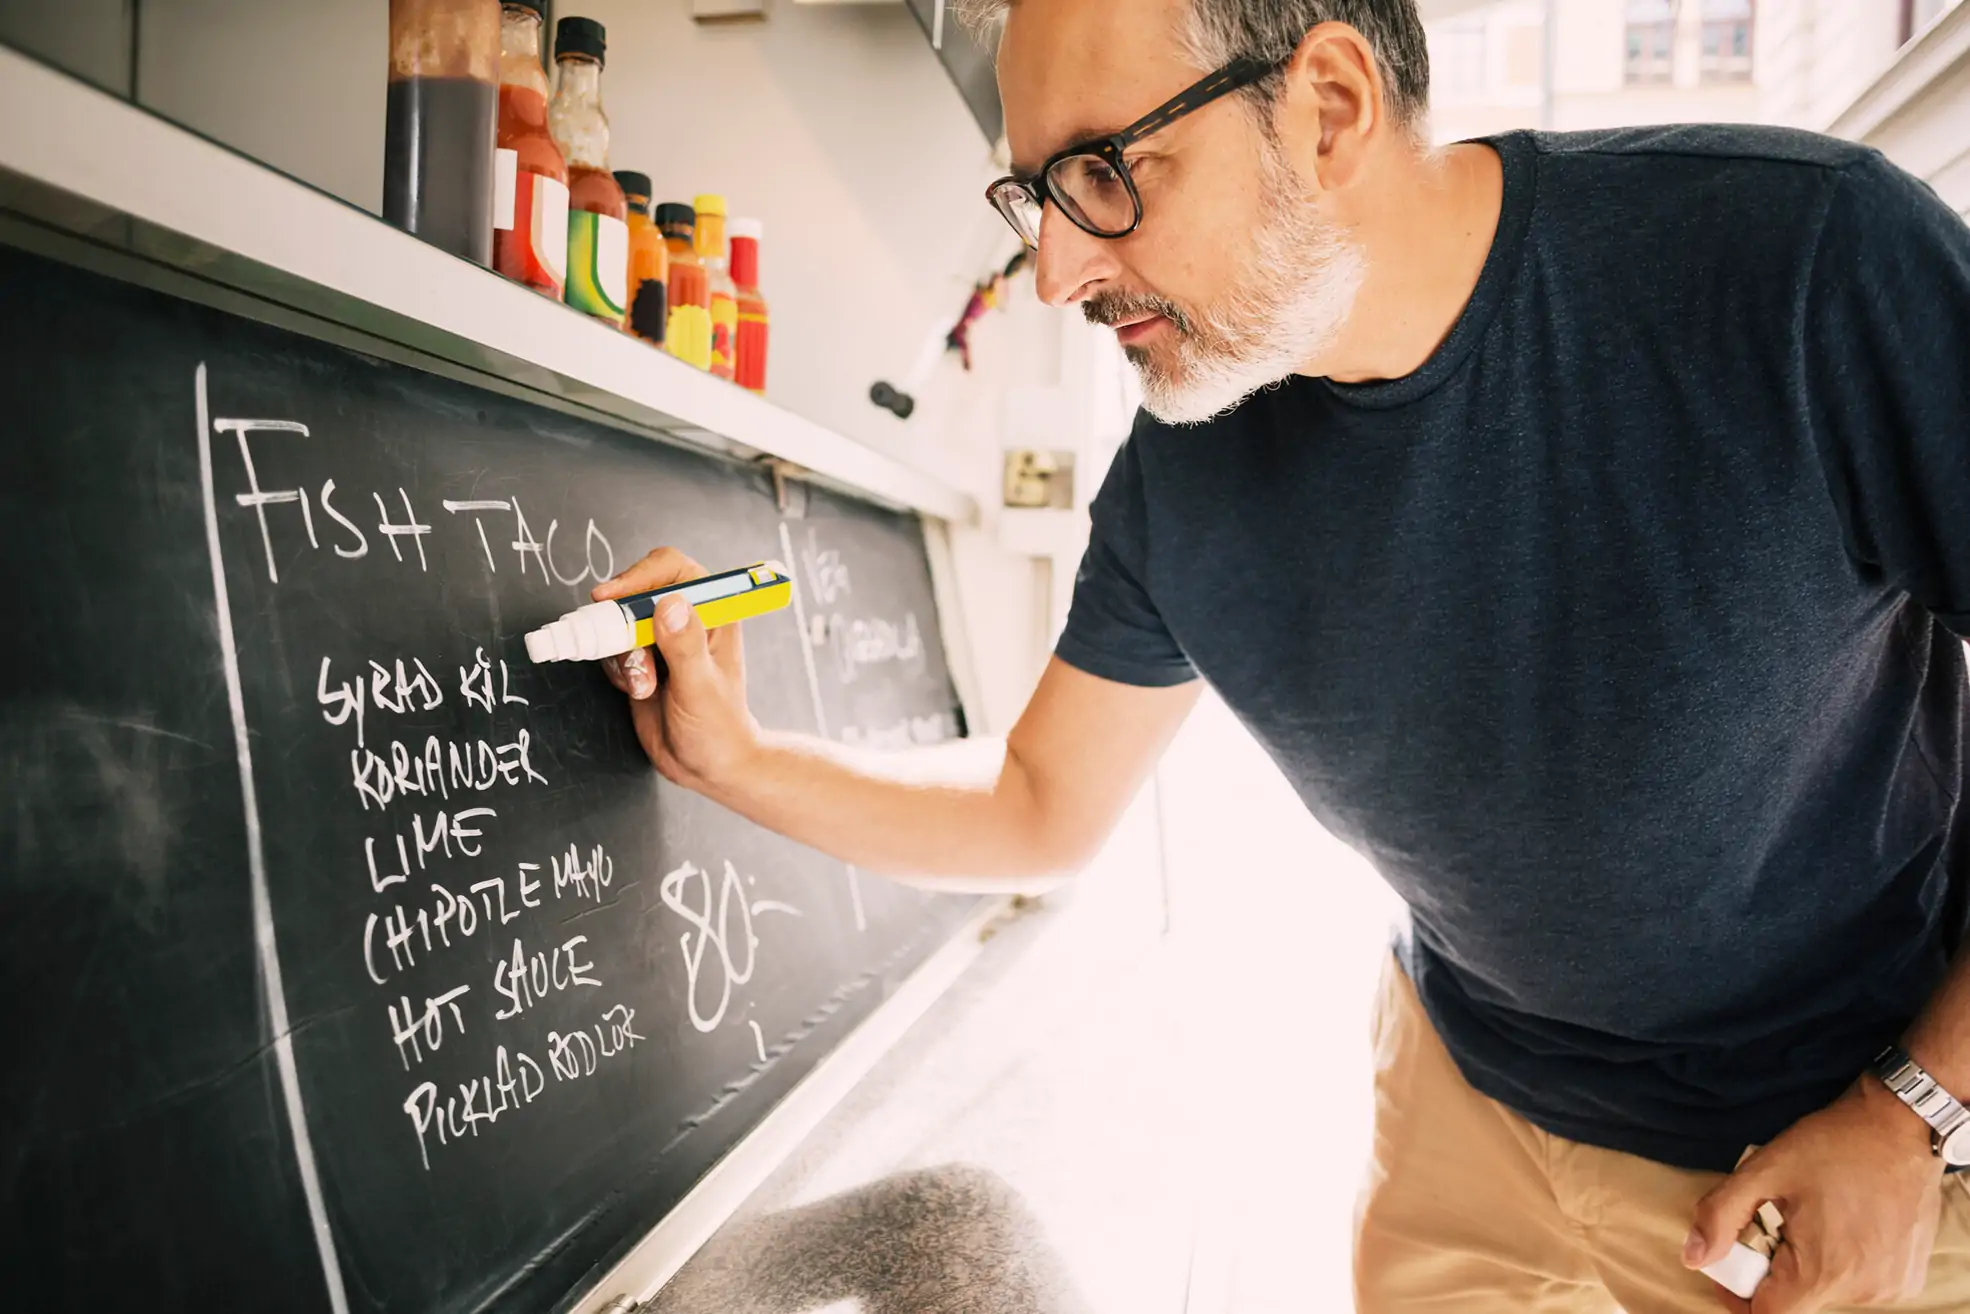 FISH TACO
SYRAD KÅL
KORIANDER
LIME
CHIPOTLE MAYO
HOT SAUCE
PICKLAD RÖDLÖK
80:-
VEG